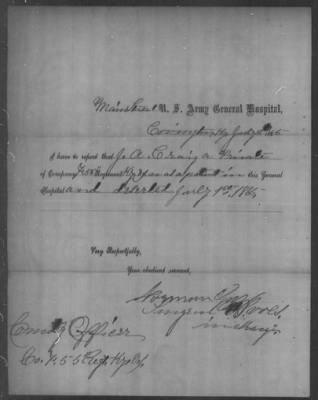 Main Street U. S. Army General Hospital,
Covington Ky July 1865
I have to report that J. A. Craig a Private
of Company F 55 Regiment Ky was a patient in this General
Hospital and deserted July 1st, 1865
Very Respectfully,
Your obedient servant,
Surgeon Vols.
in charge
Comdg Officer
Co. F. 55 Regt Ky Vols